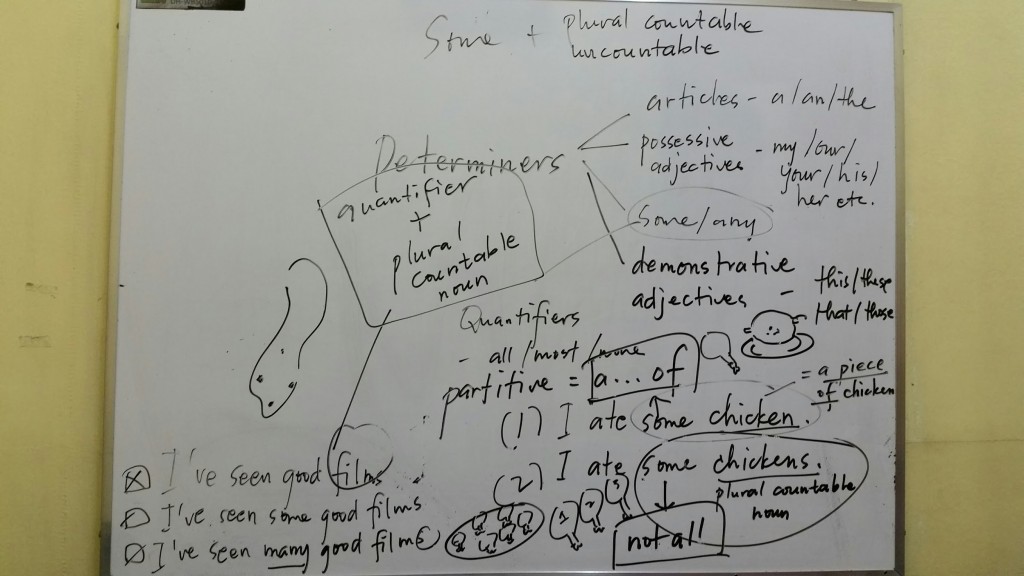 Some + plural countable
uncountable
Determiners
articles - a/an/the
possessive
adjectives - my/our/
your/his/
her etc.
some/any
demonstrative
adjectives - this/these
that/those
quantifier
+
plural
countable
noun
Quantifiers
- all/most/none
partitive = a... of
(1) I ate some chicken.
= a piece
of chicken
(2) I ate some chickens.
plural countable
noun
not all
1 2 3
I've seen good films
I've seen some good films
I've seen many good films